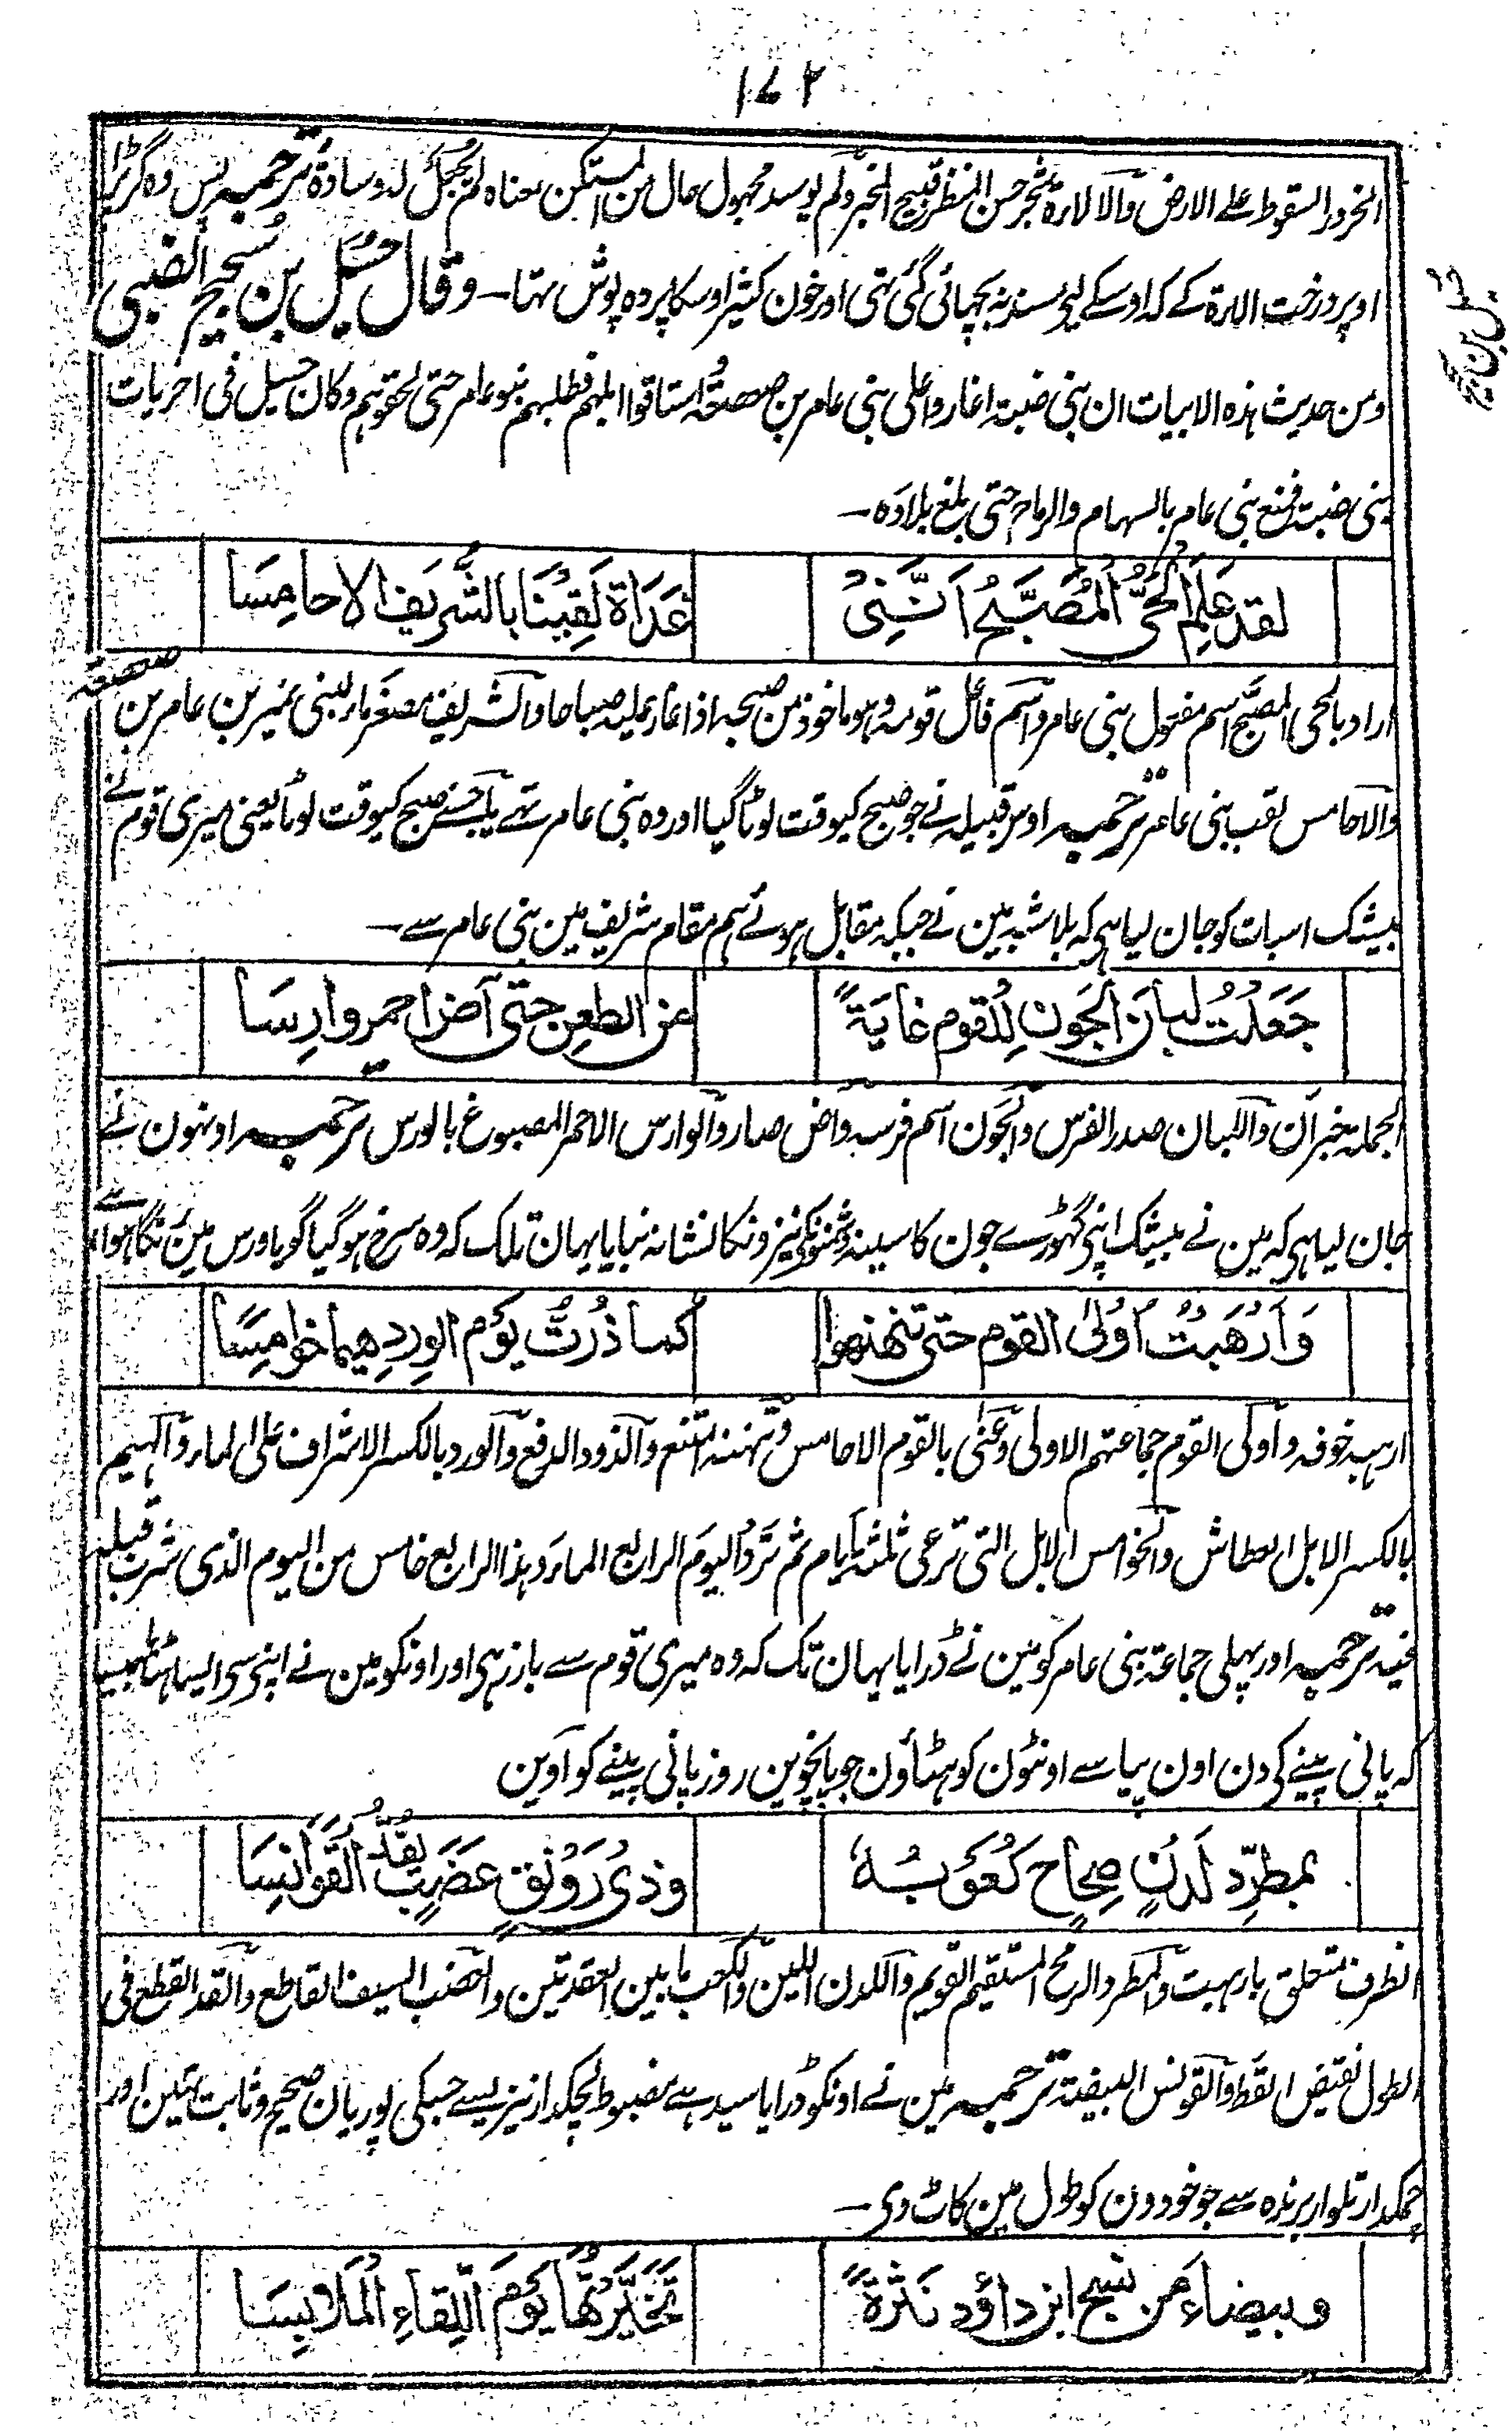 ۱۷۲
الخرور السقوط علے الارض والالارۃ شجر حسن المنظر قبیح المخبر ولم یوسد مجہول حال من المستکن معناہ لم یجعل لہ وسادۃ ترجمہ پس وہ گر پڑا
اوپر درخت الارۃ کے کہ اوسکے لیے مسند نہ بچھائی گئی تہی اور خون کثیر اوسکا پردہ پوش تہا — وقال حسیل بن سجیح الضبی
حسیل بن سجیح
ومن حدیث ہذہ الابیات ان بنی ضبۃ اغاروا علی بنی عامر بن صعصعۃ استاقوا ابلہم فطلبہم بنو عامر حتی لحقوہم وکان حسیل فی اخریات
بنی ضبۃ فمنع بنی عامر بالسہام والرماح حتی بلغ بلادہ —
لقد عَلِمَ الحَیُّ المُصَبَّحُ اَنَّنِیْ غَدَاۃَ لَقِیْنَا بالشُّرَیف الاحامِسَا
اراد بالحی المصبح اسم مفعول بنی عامر واسم فاعل قومہ وہو ماخوذ من صبحہ اذا غار علیہ صباحا والشریف مصغر ماء لبنی نمیر بن عامر بن صعصعۃ
والاحامس لقب بنی عامر ترجمہ اوس قبیلہ نے جو صبح کیوقت لوٹا گیا اور وہ بنی عامر تہے یا جسنے صبح کیوقت لوٹا یعنی میری قوم نے
بیشک اسبات کو جان لیا ہی کہ بلاشبہ مین نے جبکہ مقابل ہوئے ہم مقام شریف مین بنی عامر سے —
جَعَلْتُ لَبانَ الجَونِ لِلقوم غَایَۃً من الطعنِ حتی آضَ احمر وارِسَا
الجملۃ خبر ان واللبان صدر الفرس والجون اسم فرسہ وآض صار والوارس الاحمر المصبوغ بالورس ترجمہ اونہون نے
جان لیا ہی کہ مین نے بیشک اپنی گہوڑے جون کا سینہ دشمنونکی نیزونکا نشانہ بنایا یہان تلک کہ وہ سرخ ہوگیا گویا ورس مین رنگا ہوا ہے
وَاَرْهَبْتُ اُولیٰ القوم حتی تنهنهوا کما ذُدْتُ یوْم الوِردِ هیما خوامِسًا
ارہبہ خوفہ واولی القوم جماعتہم الاولی وعنی بالقوم الاحامس وتنہنہ امتنع والذود الدفع والورد بالکسر الاشراف علی الماء والہیم
بالکسر الابل العطاش والخوامس الابل التی ترعی ثلثۃ ایام ثم ترد الیوم الرابع الماء وہذا الرابع خامس من الیوم الذی شرب قبلہ
فیہ ترجمہ اور پہلی جماعۃ بنی عامر کو مین نے ڈرایا یہان تک کہ وہ میری قوم سے باز رہی اور اونکو مین نے اپنی سے ایسا ہٹایا جیسا
کہ پانی پینے کی دن اون پیاسے اونٹون کو ہٹاؤن جو پانچوین روز پانی پینے کو آوین
بمطرِّد لَدْنٍ صِحاحٍ کُعُوْبُہٗ وذی رَوْنَقٍ عَضْبٍ یَقُدُّ القَوَانِسَا
الظرف متعلق بارہبت والمطرد الرمح المستقیم القویم واللدن اللین والکعب ما بین العقدتین والعضب السیف القاطع والقد القطع فی
الطول نقیض القط والقونس البیضۃ ترجمہ مین نے اونکو ڈرایا سیدہے مضبوط لچکدار نیزیسے جسکی پوریان صحیح وثابت تہین اور
چمکدار تلوار برندہ سے جو خودون کو طول مین کاٹ دی —
وبیضاءَ من نسج ابن داؤد نَثْرَۃً تَخَیَّرْتُهَا یَوْمَ اللِّقاءِ المَلَابِسَا